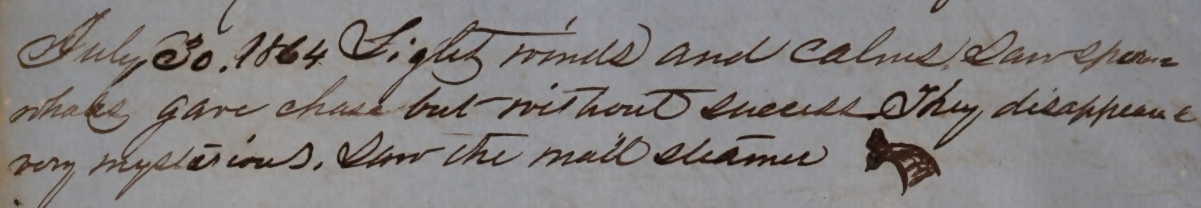 July 30. 1864 Light winds and calms. Saw sperm
whales gave chase but without success. They disappeard
very mysterious. Saw the mail steamer